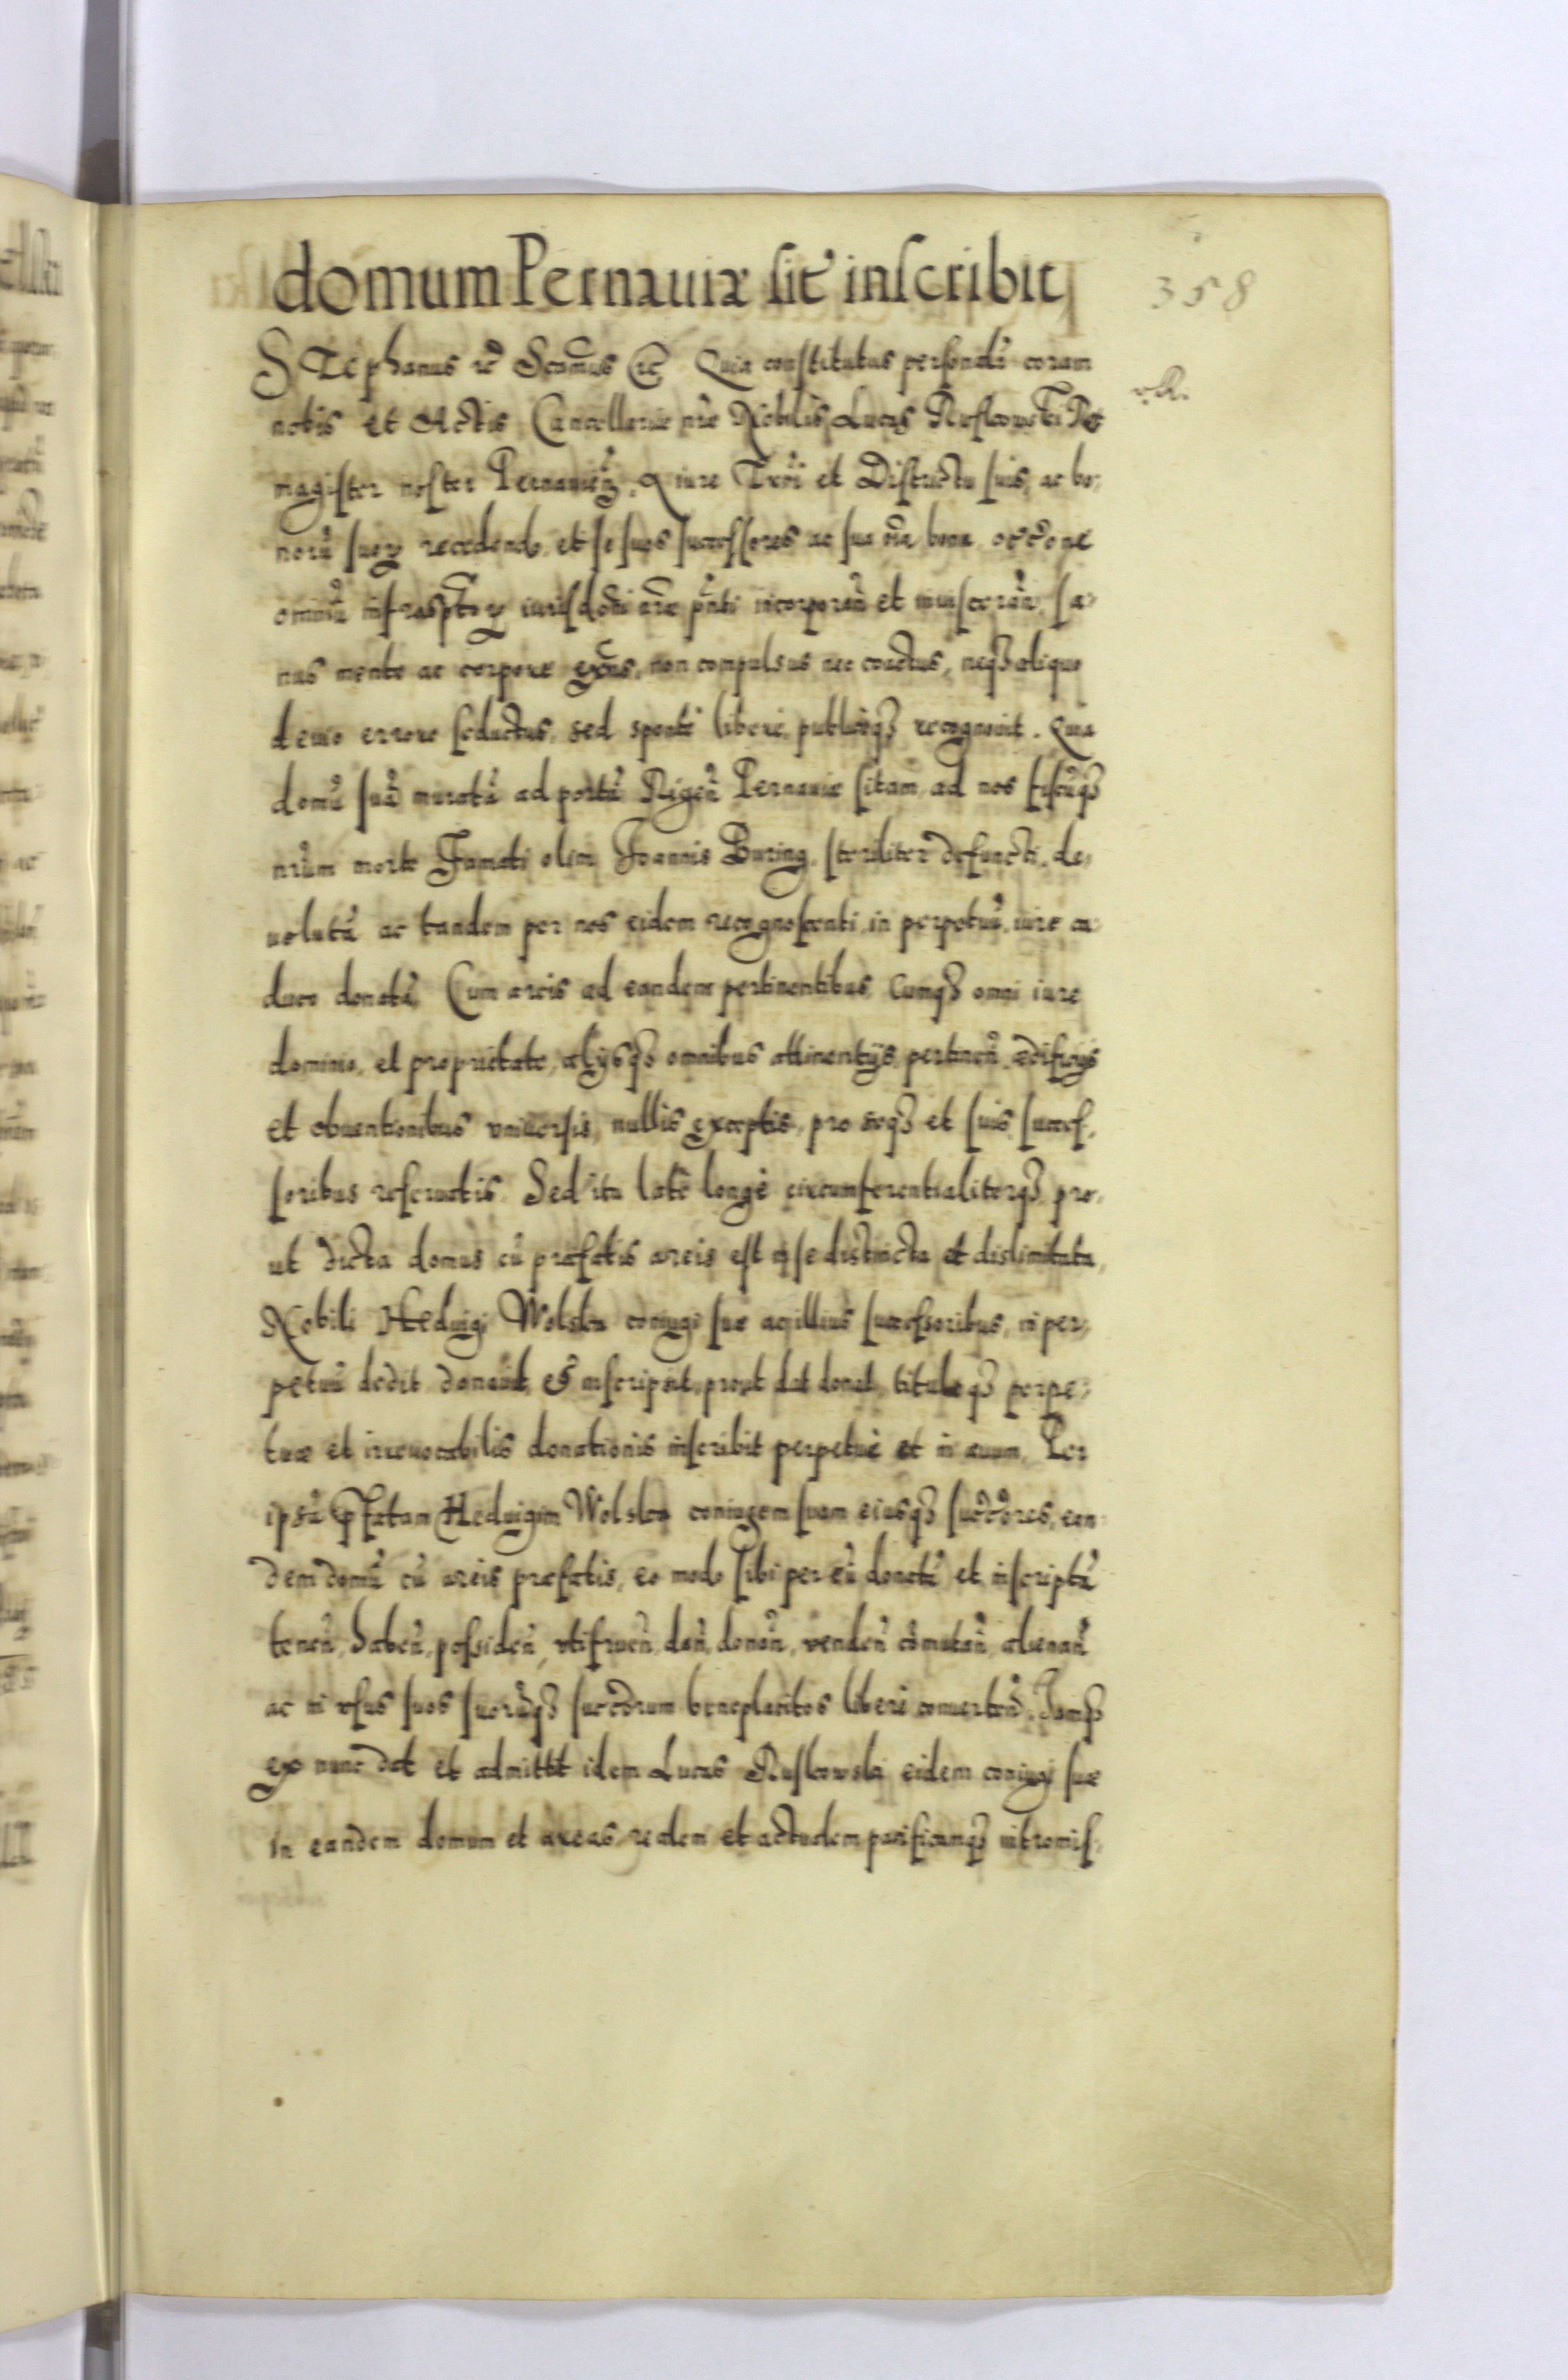 domum Pernauiæ sit inscribit
358
Stephanus etc. Scimus etc. Quia constitutus personalr coram
nobis et Actis Cancellariæ nræ Nobilis Lucas Ruskowski
magister noster Pernauien, iure Trrii et Districtu suis, ac bo-
norũ suor recedendo, et se suos successores ac sua oĩa bona
omniũ infrascptor iurisdõni nræ pñti incorporañ et inuisceran, sa-
nus mente ac corpore exñs, non compulsus nec coactus, neqз aliquo
deuio errore seductus, sed sponte libere, publiceqз recognouit. Quia
domũ suã muratã ad portã Rigeñ Pernauiæ sitam, ad nos fiscũqз
nrũm morte Famati olim Joannis Buring, steriliter defuncti, de-
uolutã ac tandem per nos eidem recognoscenti, in perpetuũ, iure ca-
duco donatã, Cum areis ad eandem pertinentibus, Cumqз omni iure
dominio, et proprietate, alijsqз omnibus attinentijs, pertineñ, ædificijs
et obuentionibus vniuersis, nullis exceptis, pro seqз et suis succes-
soribus reseruatis. Sed ita late longe circumferentialiterqз, pro-
ut dicta domus cũ præfatis areis est in se distincta et dislimitata,
Nobili Heduigi Wolska coniugi suæ ac illius successoribus, in per-
petuũ dedit donauit, et inscripsit, prout dat donat, tituloqз perpe-
tuæ et irreuocabilis donationis inscribit perpetue et in æuum. Per
ipsã pfatam Heduigim Wolska coniugem suam eiusqз succõres, ean-
dem domũ cũ areis præfatis, eo modo sibi per eũ donatã et inscriptã
teneñ, habeñ, possideñ, vtifrueñ, dañ, donañ, vendeñ cõmutañ, alienañ
ac in vsus suos suorũqз succõrum beneplacitos libere conuerteñ. Jamqз
ex nunc dat et admittit idem Lucas Ruskowski eidem coniugi suæ
in eandem domum et areas, realem et actualem pacificamqз intromis-